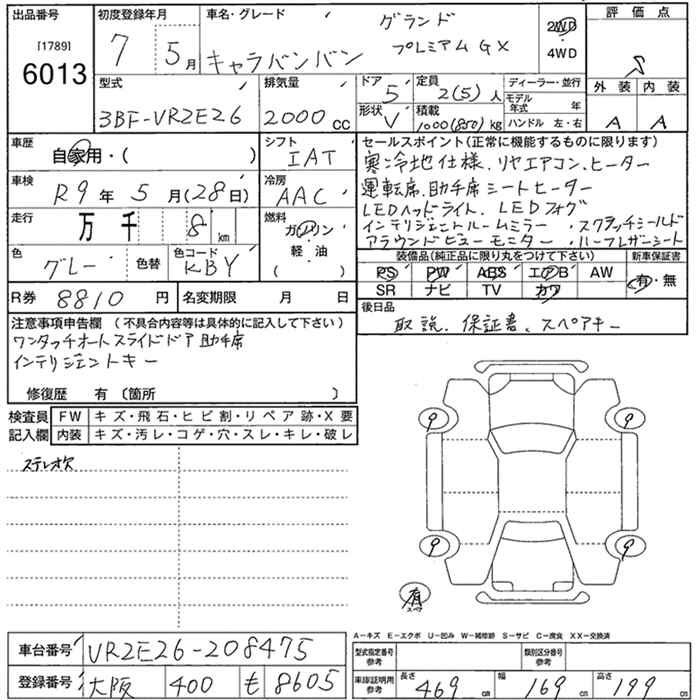 出品番号 [1789] 6013
初度登録年月 7 5月
車名・グレード キャラバンバン グランド プレミアムGX
2WD
4WD
評価点 S
外装 内装
A A
型式 3BF-VR2E26
排気量 2000 cc
ドア 5
形状 V
定員 2(5)人
積載 1000(850)kg
ディーラー・並行
モデル年式 年
ハンドル 左・右
車歴 自家用・( )
シフト IAT
車検 R9年5月(28日)
冷房 AAC
走行 万 千 8 km
燃料 ガソリン
軽・油
( )
色 グレー 色替
色コード KBY
R券 8810 円 名変期限 月 日
セールスポイント(正常に機能するものに限ります)
寒冷地仕様.リヤエアコン、ヒーター
運転席.助手席シートヒーター
LEDヘッドライト、LEDフォグ
インテリジェントルームミラー ・スクラッチシールド
アラウンドビューモニター ・ハーフレザーシート
装備品(純正品に限り丸をつけて下さい) 新車保証書
PS PW ABS エアB AW 有・無
SR ナビ TV カワ
後日品
取説.保証書、スペアキー
注意事項申告欄 (不具合内容等は具体的に記入して下さい)
ワンタッチオートスライドドア助手席
インテリジェントキー
修復歴 有 (箇所 )
検査員記入欄
FW キズ・飛石・ヒビ割・リペア跡・X要
内装 キズ・汚レ・コゲ・穴・スレ・キレ・破レ
ステレオ欠
9 9
9 9
有
A-キズ E-エクボ U-凹み W-補修跡 S-サビ C-腐食 XX-交換済
車台番号 VR2E26-208475
型式指定番号 参考
類別区分番号 参考
登録番号 大阪 400 そ 8605
車庫証明用 参考
長さ 469 cm 幅 169 cm 高さ 199 cm